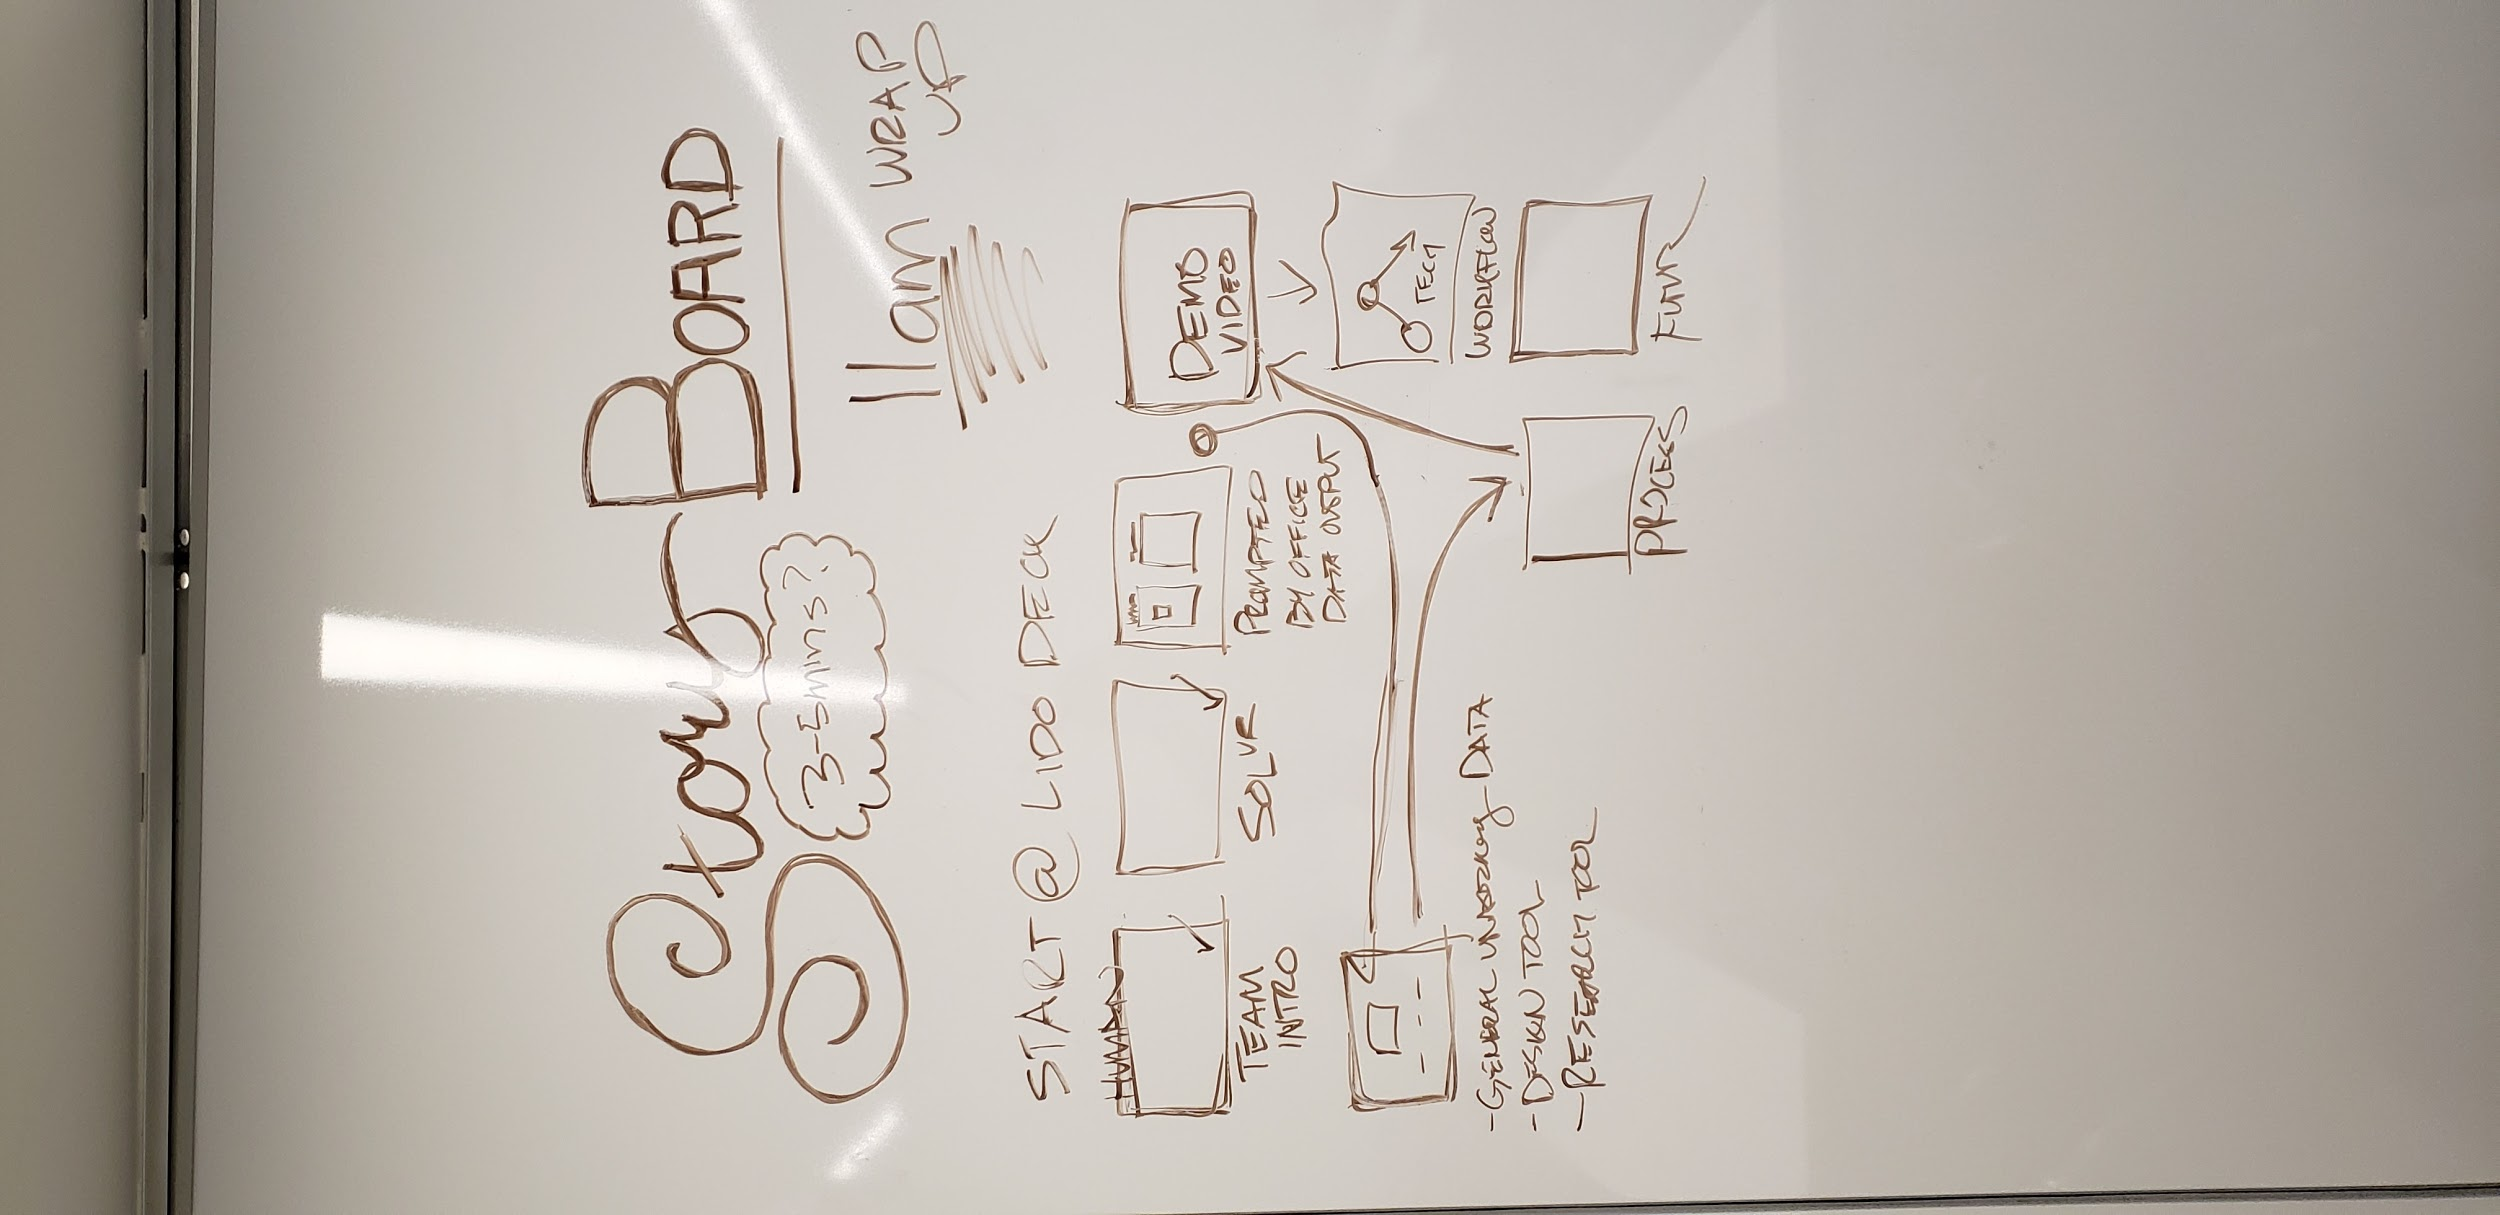 Story BOARD
3-5 mins?
11am WRAP
UP
START @ LIDO DECK
HUMAN
TEAM
INTRO
SOLVE
PROMPTED
BY OFFICE
DATA OUTPUT
DEMO
VIDEO
TECH
WORKFLOW
- GENERAL UNDERLYING DATA
- DESIGN TOOL
- RESEARCH TOOL
PROCESS